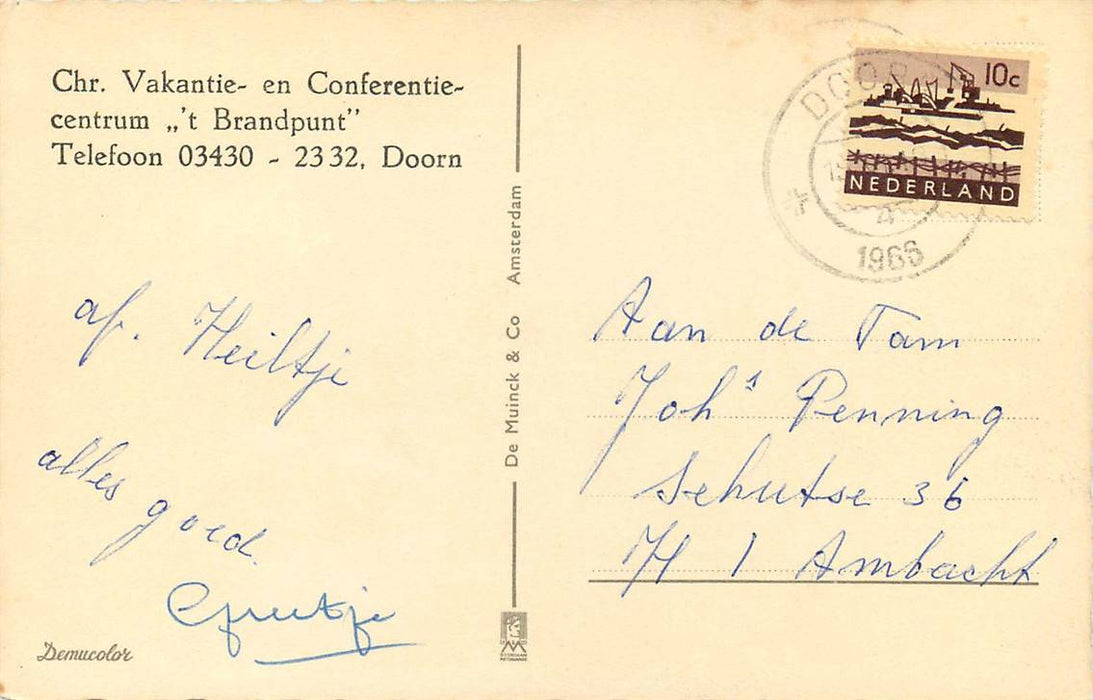 Chr. Vakantie- en Conferentie-
centrum „'t Brandpunt”
Telefoon 03430 - 2332, Doorn
af. Heiltje
alles
goed.
Demucolor
De Muinck & Co Amsterdam
DOORN
4
1966
10c
NEDERLAND
Aan de Fam
Johs Penning
Schutse 36
H I Ambacht